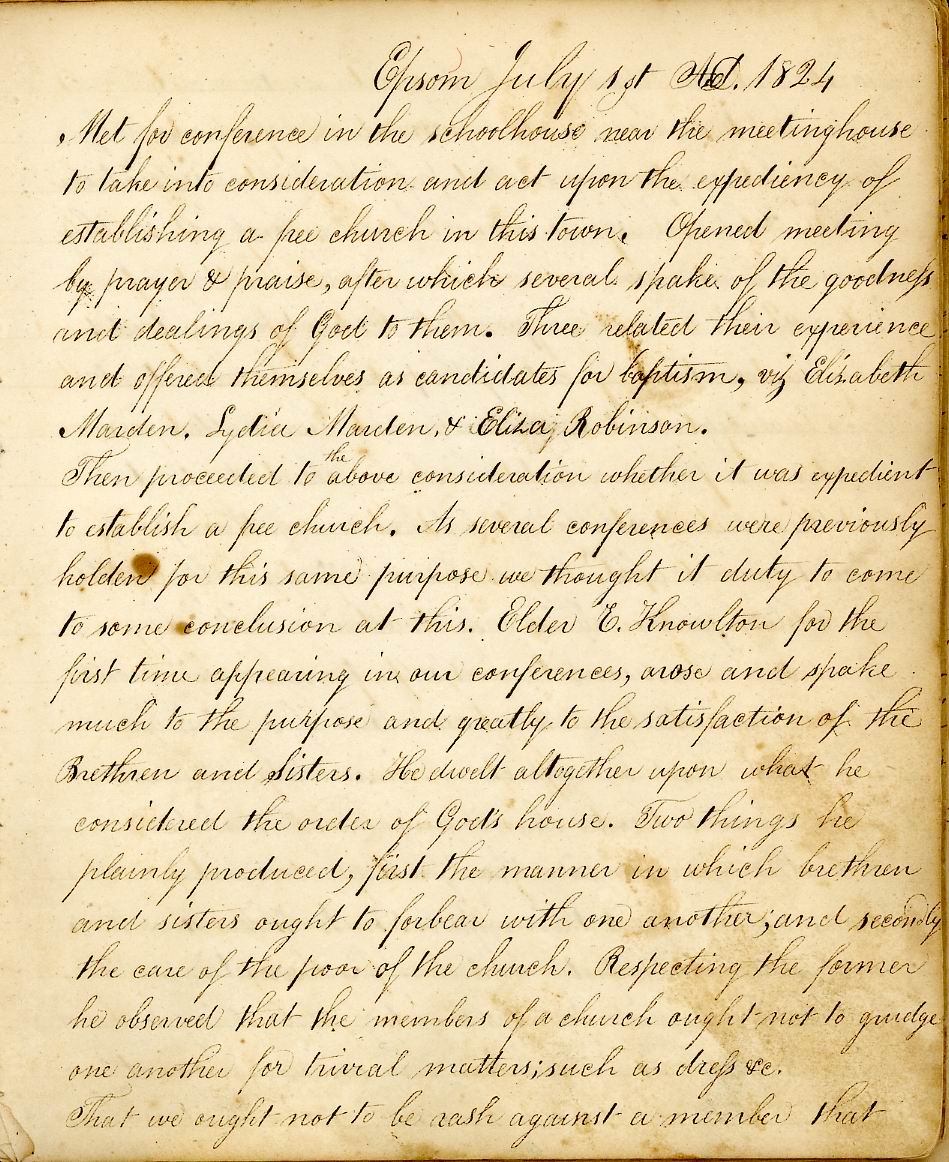 Epsom July 1st AD. 1824
Met for conference in the schoolhouse near the meetinghouse
to take into consideration and act upon the expediency of
establishing a free church in this town. Opened meeting
by prayer & praise, after which several spake of the goodness
and dealings of God to them. Three related their experience
and offered themselves as candidates for baptism, viz Elizabeth
Marden. Lydia Marden, & Eliza Robinson.
Then proceeded to the above consideration whether it was expedient
to establish a free church. As several conferences were previously
holden for this same purpose we thought it duty to come
to some conclusion at this. Elder E. Knowlton for the
first time appearing in our conferences, arose and spake
much to the purpose and greatly to the satisfaction of the
Brethren and Sisters. He dwelt altogether upon what he
considered the order of God's house. Two things he
plainly produced, first the manner in which brethren
and sisters ought to forbear with one another; and secondly
the care of the poor of the church. Respecting the former
he observed that the members of a church ought not to grudge
one another for trivial matters; such as dress &c.
That we ought not to be rash against a member that